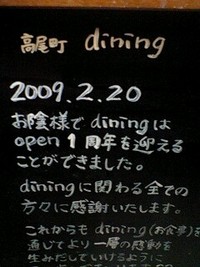 高尾町 dining
2009.2.20
お陰様で diningは
open 1周年を迎える
ことができました。
diningに関わる全ての
方々に感謝いたします。
これからも dining(お食事)を
通じてより一層の感動を
生みだしていけるように